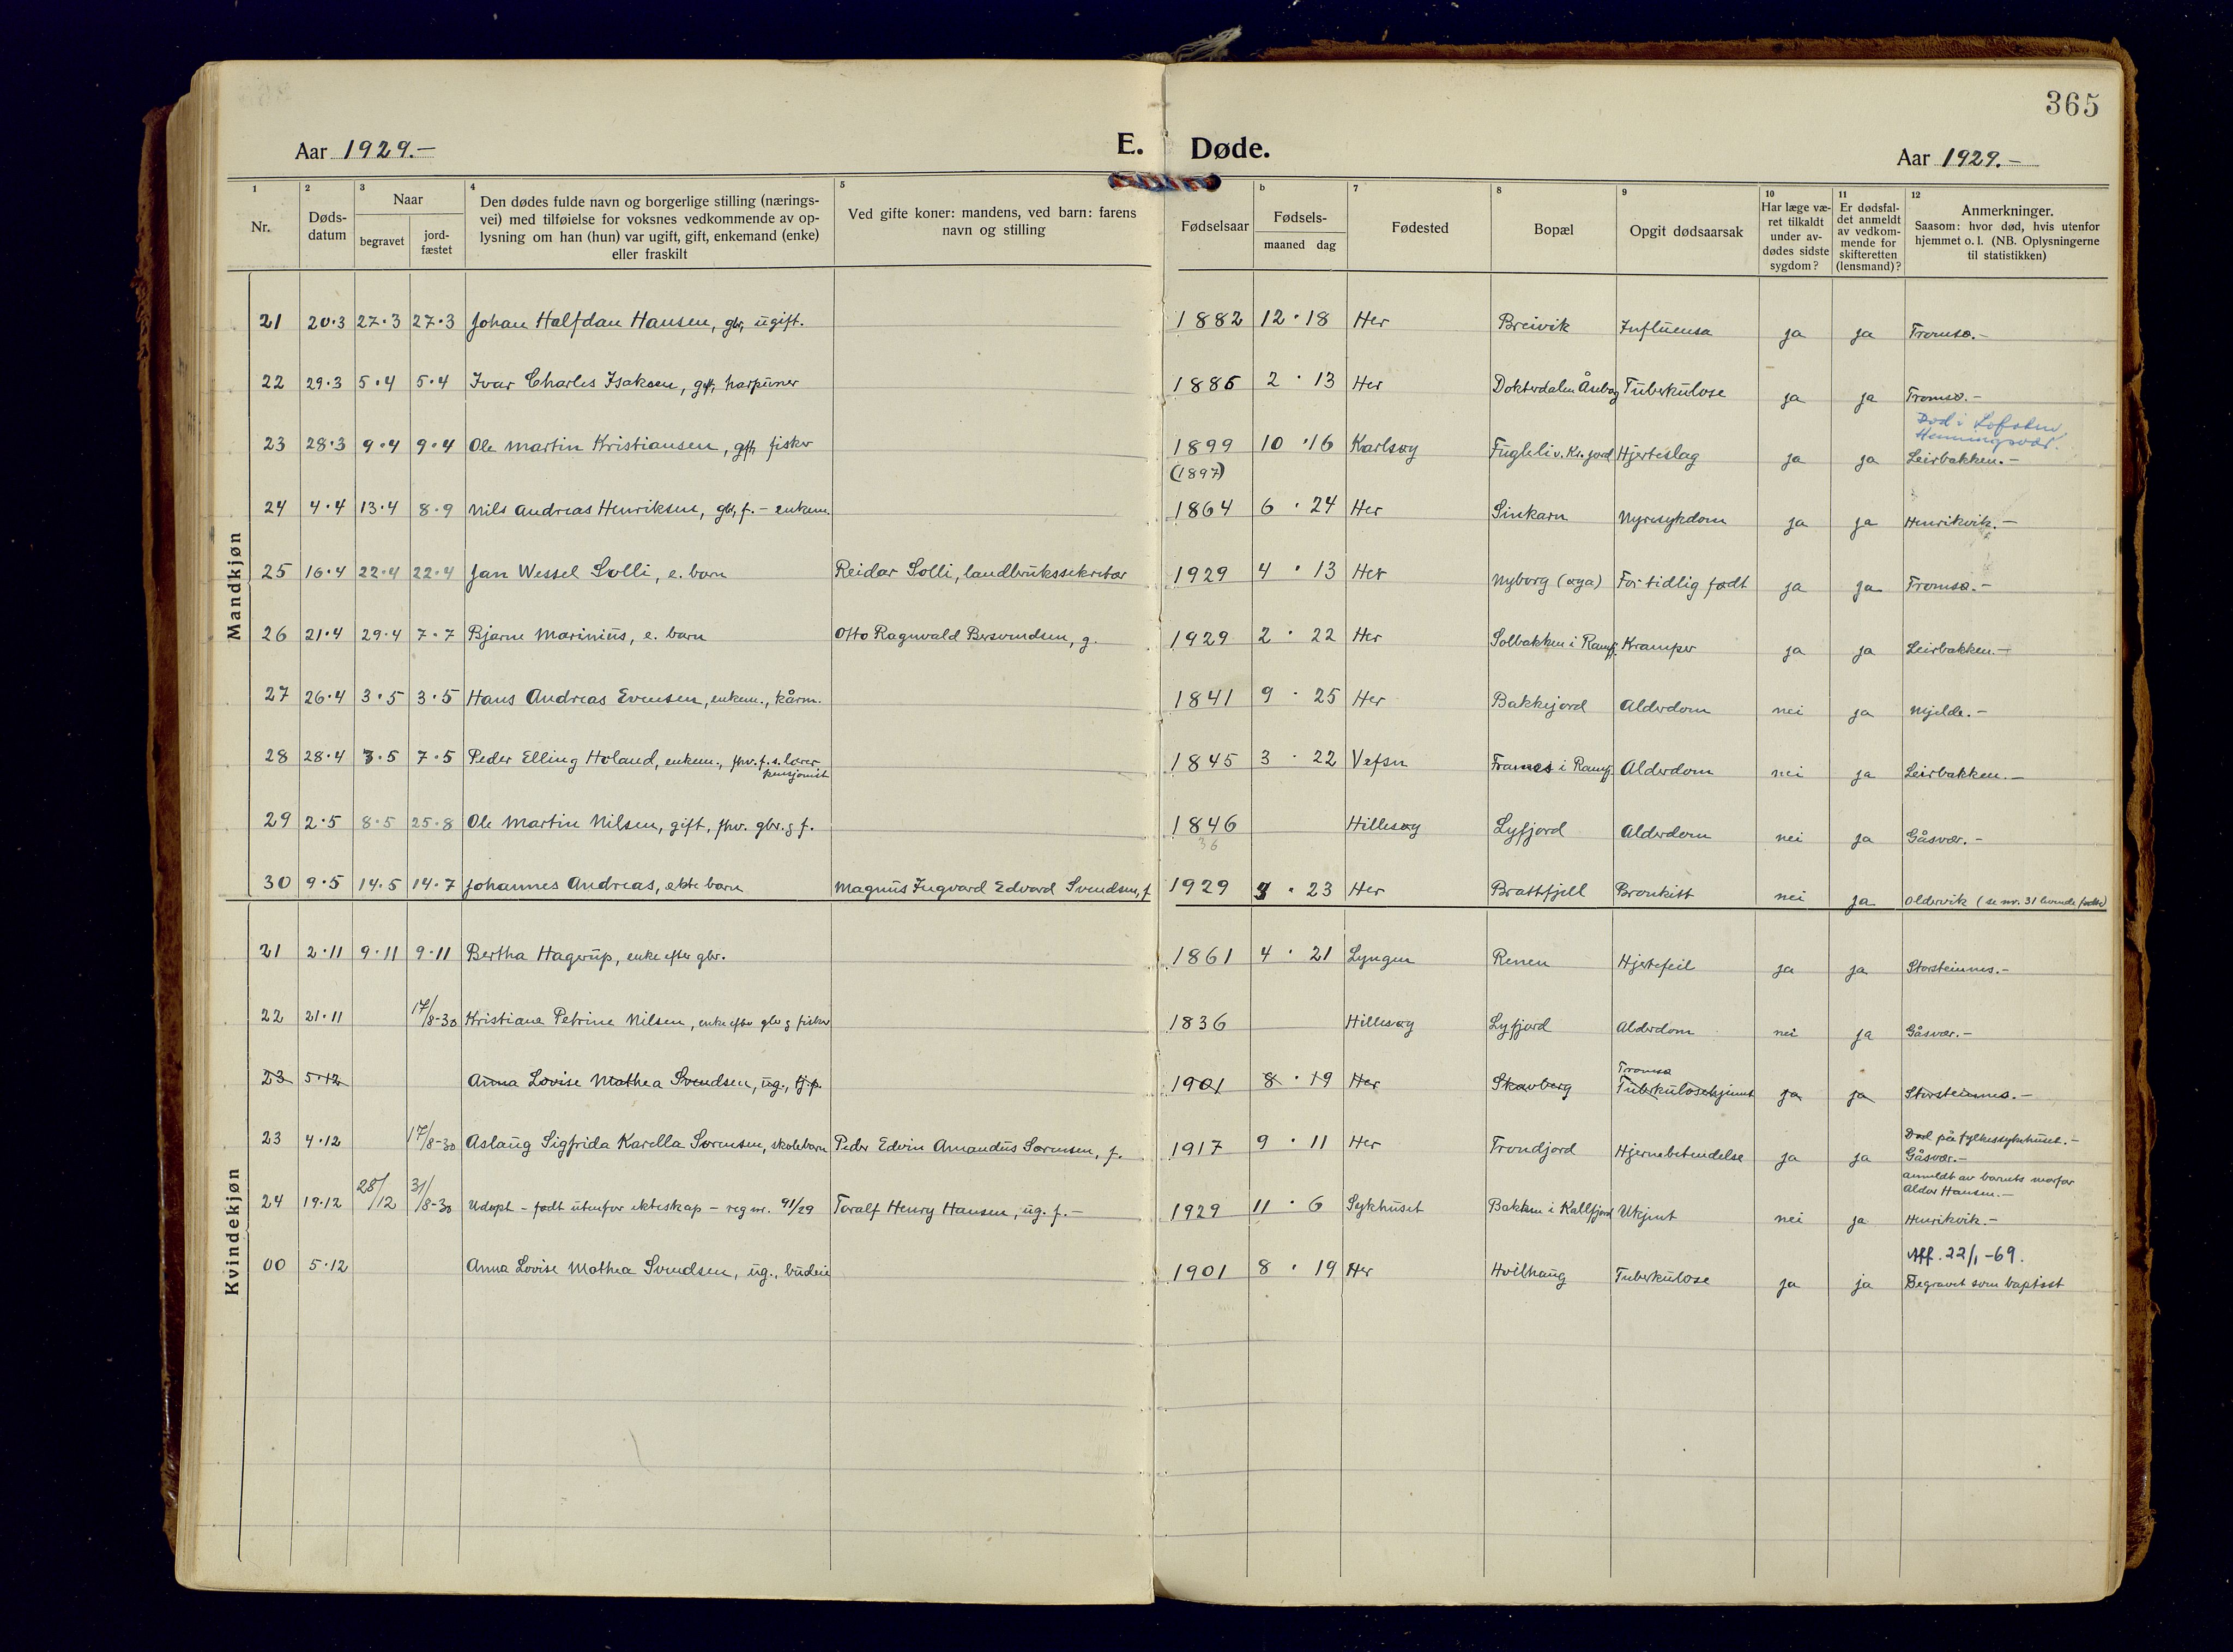 365
Aar 1929.-
E. Døde.
Aar 1929.-
1 Nr.
2 Døds-datum
3 Naar
begravet
jord-fæstet
4 Den dødes fulde navn og borgerlige stilling (nærings-
vei) med tilføielse for voksnes vedkommende av op-
lysning om han (hun) var ugift, gift, enkemand (enke)
eller fraskilt
5 Ved gifte koner: mandens, ved barn: farens
navn og stilling
Fødselsaar
b Fødsels-
maaned dag
7 Fødested
8 Bopæl
9 Opgit dødsaarsak
10 Har læge væ-
ret tilkaldt
under av-
dødes sidste
sygdom?
11 Er dødsfal-
det anmeldt
av vedkom-
mende for
skifteretten
(lensmand)?
12 Anmerkninger.
Saasom: hvor død, hvis utenfor
hjemmet o. l. (NB. Oplysningerne
til statistikken)
Mandkjøn
21 20.3 27.3 27.3 Johan Halfdan Hansen, gbr, ugift. 1882 12.18 Her Breivik Influensa ja ja Tromsø.-
22 29.3 5.4 5.4 Ivar Charles Isaksen, gift, harpuner 1885 2.13 Her Dokterdalen Åsebog Tuberkulose ja ja Tromsø.-
Død i Lofoten,
Henningsvær.
23 28.3 9.4 9.4 Ole Martin Kristiansen, gift, fisker 1899 10.16 Karlsøy Fugleli v. Kr.fjord Hjerteslag ja ja Leirbakken.-
(1897)
24 4.4 13.4 8.9 Nils Andreas Henriksen, gbr, f. - enkem. 1864 6.24 Her Sinkarn Nyresykdom ja ja Henrikvik.-
25 16.4 22.4 22.4 Jan Wessel Solli, e. barn Reidar Solli, landbrukssekretær 1929 4.13 Her Nyborg (øya) For tidlig født ja ja Tromsø.-
26 21.4 29.4 7.7 Bjarne Marinius, e. barn Otto Ragnvald Bersvendsen, g. 1929 2.22 Her Solbakken i Ramfj. Kramper ja ja Leirbakken.-
27 26.4 3.5 3.5 Hans Andreas Evensen, enkem., kårm. 1841 9.25 Her Bakkejord Alderdom nei ja Mjelde.-
28 28.4 3.5 7.5 Peder Elling Holand, enkem., fhv. f.s. lærer 1845 3.22 Vefsn Framnes i Ramfj. Alderdom nei ja Leirbakken.-
pensjonist
29 2.5 8.5 25.8 Ole Martin Nilsen, gift, fhv. gbr. g f. 1846 Hillesøy Lyfjord Alderdom nei ja Gåsvær.-
36
30 9.5 14.5 14.7 Johannes Andreas, ekte barn Magnus Ingvard Edvard Svendsen, f 1929 3.23 Her Brattfjell Bronkitt nei ja Oldervik (se nr. 31 levende fødte)
Kvindekjøn
21 2.11 9.11 9.11 Bertha Hagerup, enke efter gbr. 1861 4.21 Lyngen Renen Hjertefeil ja ja Storsteinnes.-
22 21.11 17/8-30 Kristiane Petrine Nilsen, enke efter gbr g fisker 1836 Hillesøy Lyfjord Alderdom nei ja Gåsvær.-
Tromsø
23 5.12 Anna Lovise Mathea Svendsen, ug., tj.p. 1901 8.19 Her Skavberg Tuberkulosehjemt ja ja Storsteinnes.-
Død på fylkessykehuset.-
23 4.12 17/8-30 Aslaug Sigfrida Karella Sørensen, skolebarn Peder Edvin Amandus Sørensen, f. 1917 9.11 Her Trondjord Hjernebetendelse ja ja Gåsvær.-
anmeldt av barnets morfar
Aldor Hansen.-
24 19.12 28/12 31/8-30 Udøpt - født utenfor ekteskap - reg nr. 91/29 Toralf Henry Hansen, ug. f.- 1929 11.6 Sykhuset Bakken i Kallfjord Ukjent nei ja Henrikvik.-
Aff. 22/1-69.
00 5.12 Anna Lovise Mathea Svendsen, ug., budeie 1901 8.19 Her Hvilhaug Tuberkulose ja ja Begravet som baptist